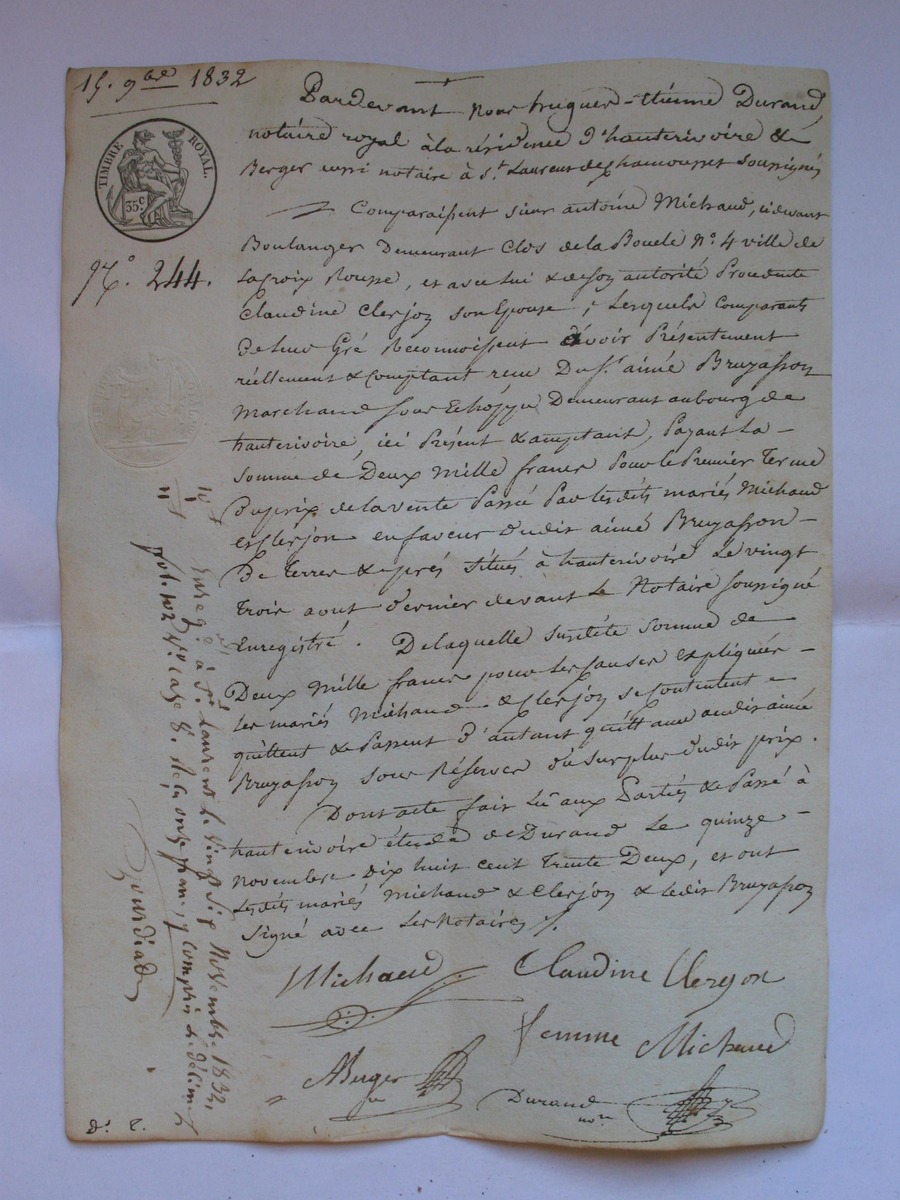 15. 9bre 1832
TIMBRE ROYAL.
35 c
N.o 244.
Pardevant Nous hugues-étienne Durand,
notaire royal à la résidence d'hauterivoire &
Berger aussi notaire à St. Laurent de Chamousset soussignés
Comparaissent sieur antoine Michaud, cidevant
Boulanger Demeurant Clos de la Boucle No. 4 ville de
la Croix Rousse, et avec lui & de son autorité Procedante
Claudine Clerjon son Epouse; Lesquels Comparants
de leur Gré Reconnoissent avoir Présentement
réellement & comptant reçu Du Sr. aimé Bruyasson
Marchand Demeurant au bourg de
hauterivoire, ici Présent & acceptant, Payant la
Somme de Deux Mille francs Pour le Premier Terme
Du prix de la vente Passée Par lesdits mariés Michaud
et Clerjon en faveur dudit aimé Bruyasson
De terres & prés situés à hauterivoire Le vingt
trois aout dernier devant Le Notaire soussigné
Enregistré. De laquelle susdite Somme de
Deux Mille francs pour les causes expliquées
les mariés Michaud & Clerjon se Contentent
quittent & Passent d'autant quittance audit aimé
Bruyasson sous Réserves du surplus dudit prix.
Dont acte fait Lû aux Parties & Passé à
hauterivoire étude de Durand Le quinze
Novembre dix huit cent trente Deux, et ont
Lesdits mariés Michaud & Clerjon & ledit Bruyasson
Signé avec Les Notaires
Michaud
Claudine Clergon
femme Michaud
ABerger
Durand
nore
10
1
11
Enregé. à St. Laurent Le vingt six Novembre 1832.
fol. 102 Vo. case 8. Reçu onze francs, y compris le décime